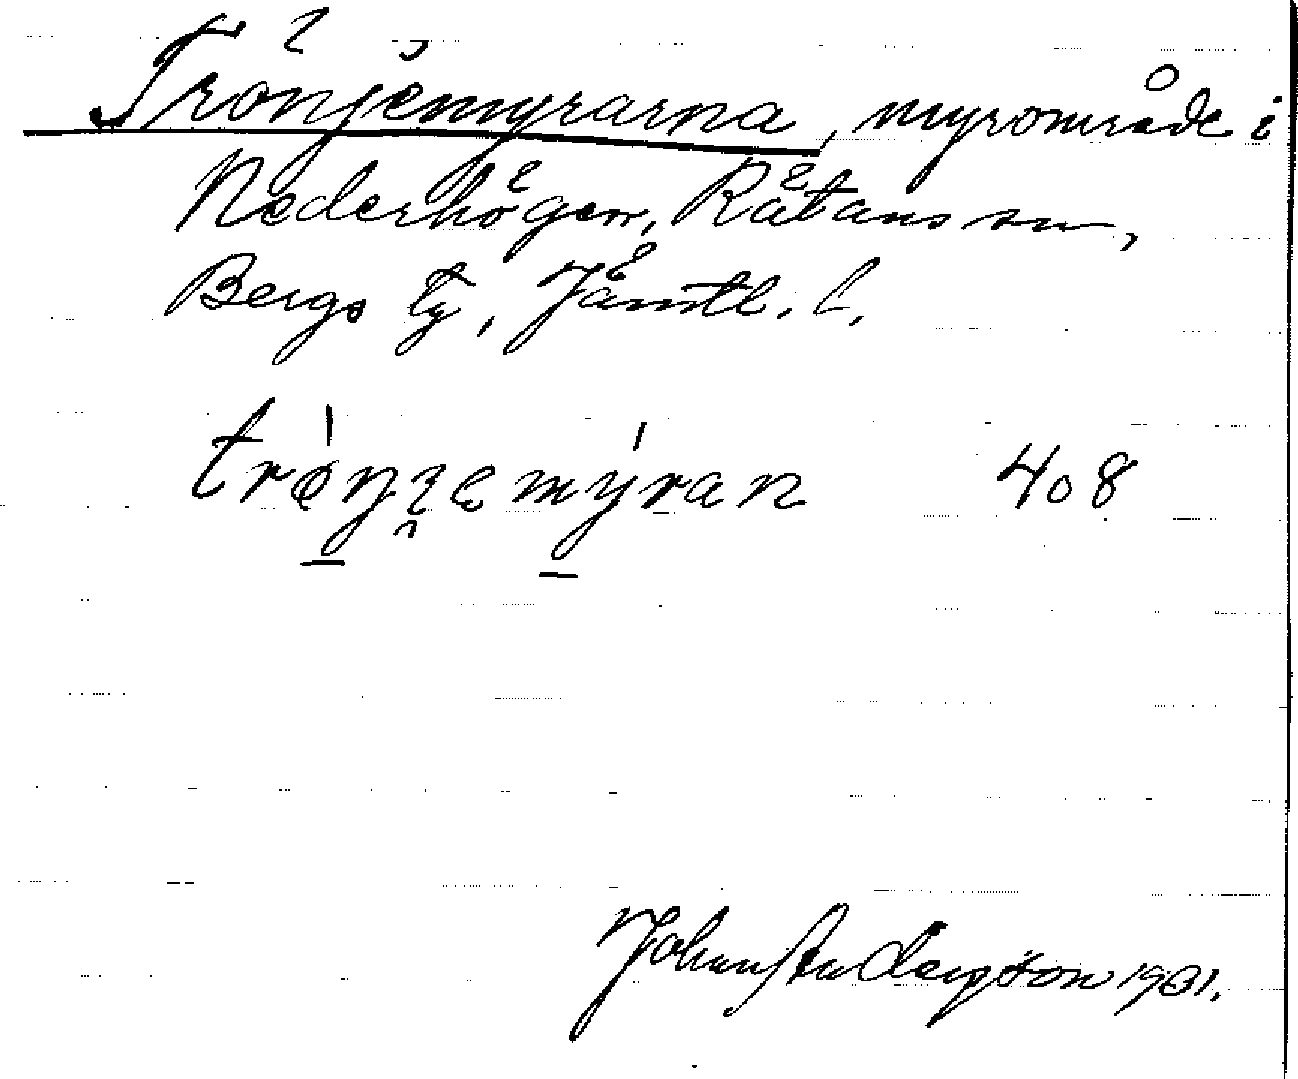 Trönjemyrarna, myrområde i
Nederhögen, Rätans sn,
Bergs tg, Jämtl. l.
408
Johan Anderson 1931.